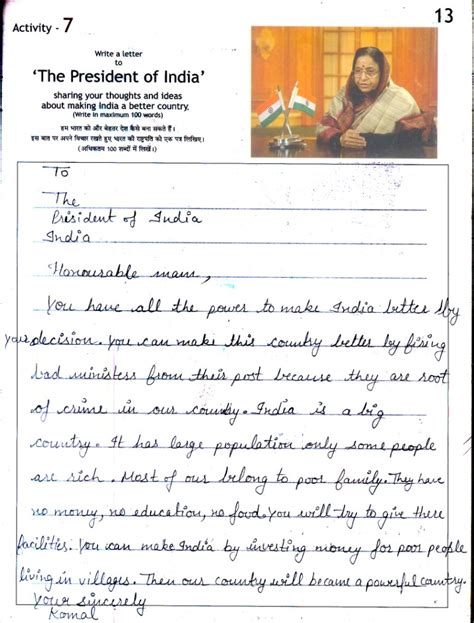 13
Activity - 7
Write a letter
to
‘The President of India’
sharing your thoughts and ideas
about making India a better country.
(Write in maximum 100 words)
हम भारत को और बेहतर देश कैसे बना सकते हैं।
इस बात पर अपने विचार रखते हुए भारत की राष्ट्रपति को एक पत्र लिखिए।
(अधिकतम 100 शब्दों में लिखें।)
To
The
President of India
India
Honourable mam,
You have all the power to make India better by
your decision. You can make this country better by firing
bad ministess from their post because they are root
of crime in our country. India is a big
country. It has large population only some people
are rich. Most of our belong to poor family. They have
no money, no education, no food. You will try to give there
facilities. You can make India by investing money for poor people
living in villages. Then our country will became a powerful country.
Your sincerely
Komal